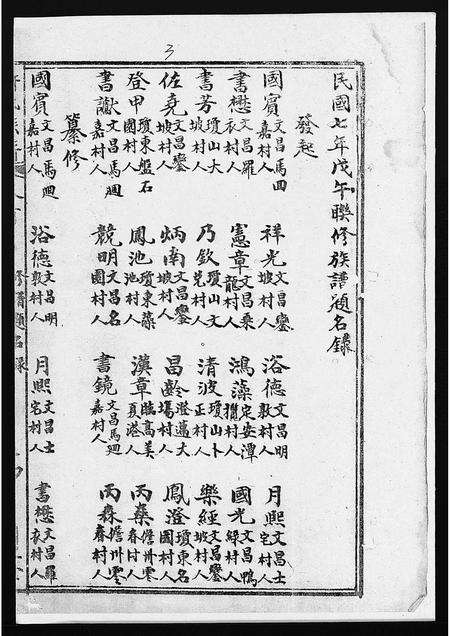 3
民國七年戊午聯修族譜題名錄
發起
國賓文昌馬田嘉村人 祥光文昌鑾坡村人 浴德文昌明敦村人 月熙文昌士宅村人
書懋文昌羅衣村人 憲章文昌桑龍村人 鴻藻定安潭攬村人 國光文昌鴨綠村人
書芳瓊山大坡村人 乃欽瓊山文兗村人 清波瓊山卜正村人 樂經文昌鑾坡村人
佐堯文昌鑾坡村人 炳南文昌鑾坡村人 昌齡澄邁大塲村人 鳳澄瓊東名園村人
登甲瓊東盤石園村人 鳳池瓊東藻池村人 漢章臨高美夏港人 丙燊儋州寒春村人
書獻文昌馬迴嘉村人 競明文昌名園村人 書鏡文昌馬迴嘉村人 丙森儋州零春村人
纂修
國賓文昌馬迴嘉村人 浴德文昌明敦村人 月熙文昌士宅村人 書懋文昌羅衣村人
修譜題名錄